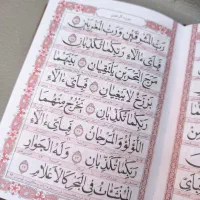 رَبُّ الْمَشْرِقَيْنِ وَرَبُّ الْمَغْرِبَيْنِ
فَبِأَىِّ ءَالَآءِ رَبِّكُمَا تُكَذِّبَانِ
مَرَجَ الْبَحْرَيْنِ يَلْتَقِيَانِ بَيْنَهُمَا
بَرْزَخٌ لَا يَبْغِيَانِ فَبِأَىِّ ءَالَآءِ
رَبِّكُمَا تُكَذِّبَانِ يَخْرُجُ مِنْهُمَا
اللُّؤْلُؤُ وَالْمَرْجَانُ فَبِأَىِّ ءَالَآءِ
رَبِّكُمَا تُكَذِّبَانِ وَلَهُ الْجَوَارِ
الْمُنْشَآتُ فِي الْبَحْرِ كَالْأَعْلَامِ